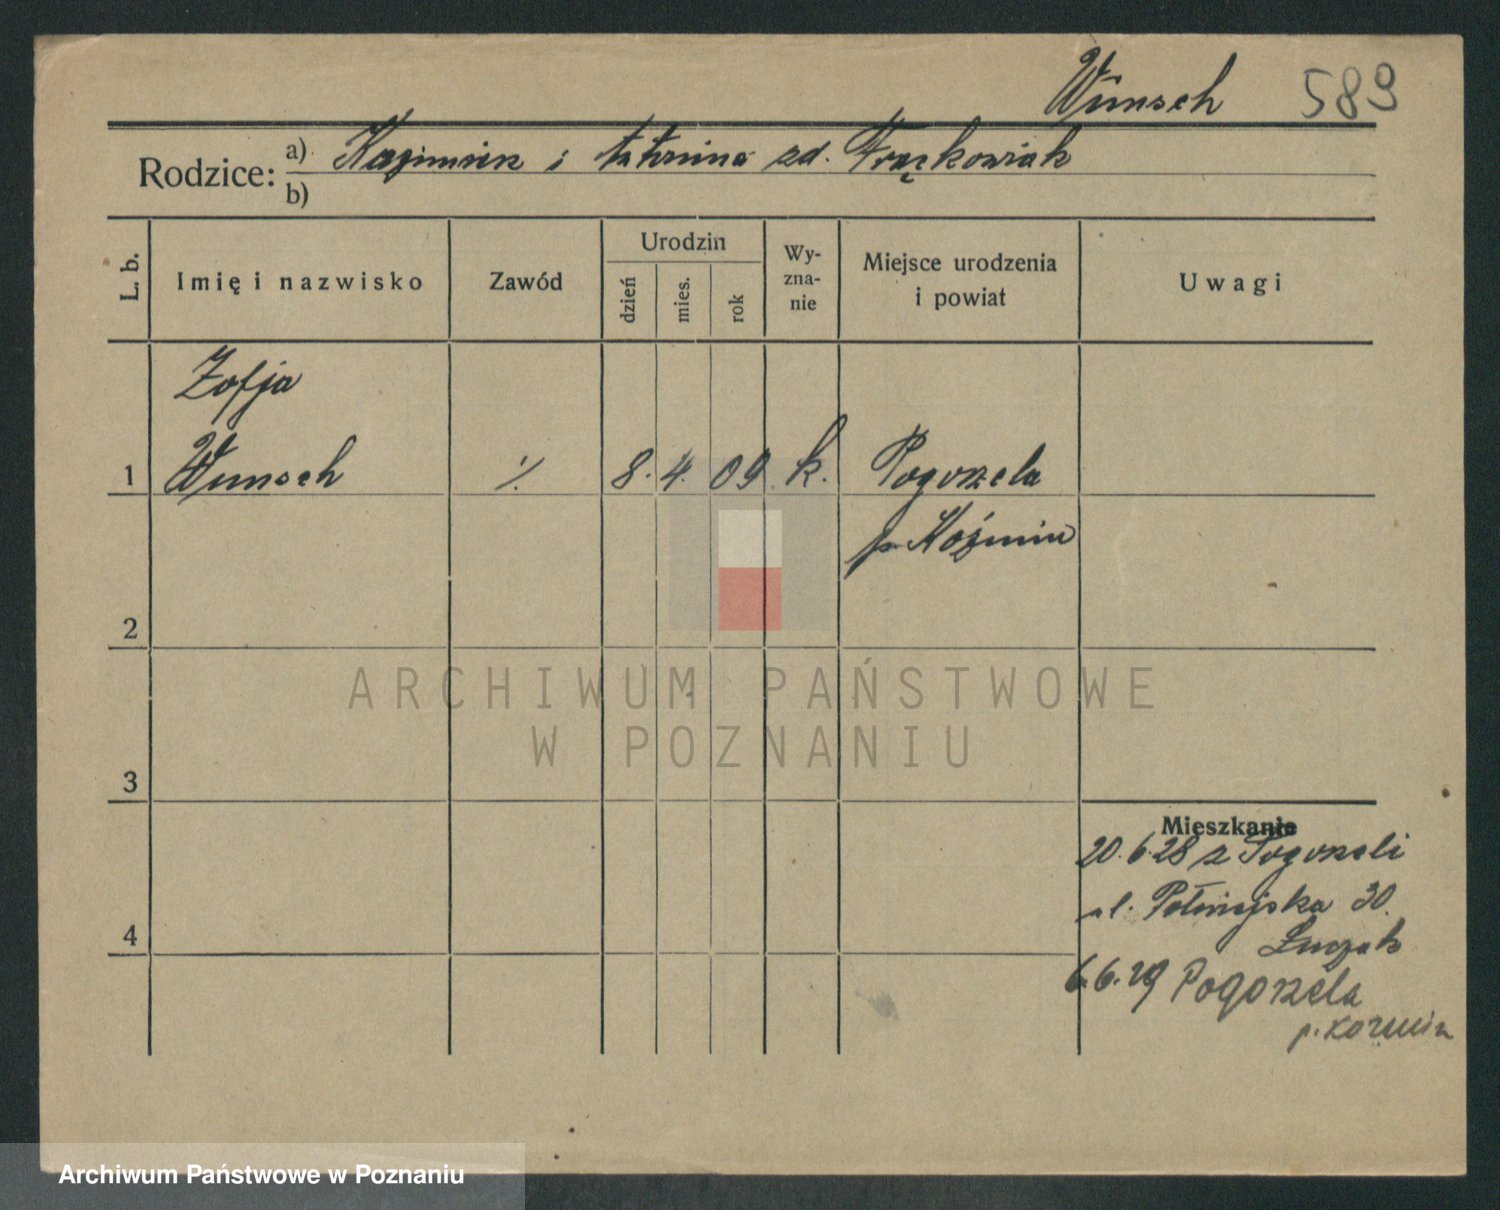 Wunsch 589
Rodzice: a) Kazimierz i Katarzina zd. Frąckowiak
b)
L. b. Imię i nazwisko Zawód Urodzin dzień mies. rok Wy-
zna-
nie Miejsce urodzenia
i powiat Uwagi
Zofja
1 Wunsch ./. 8. 4. 09 k. Pogorzela
p. Koźmin
2
3
4
Mieszkanie
20.6.28 z Pogorzeli
ul. 30
6.6.29 Pogorzela
p. Kozmin
ARCHIWUM PAŃSTWOWE
W POZNANIU
Archiwum Państwowe w Poznaniu